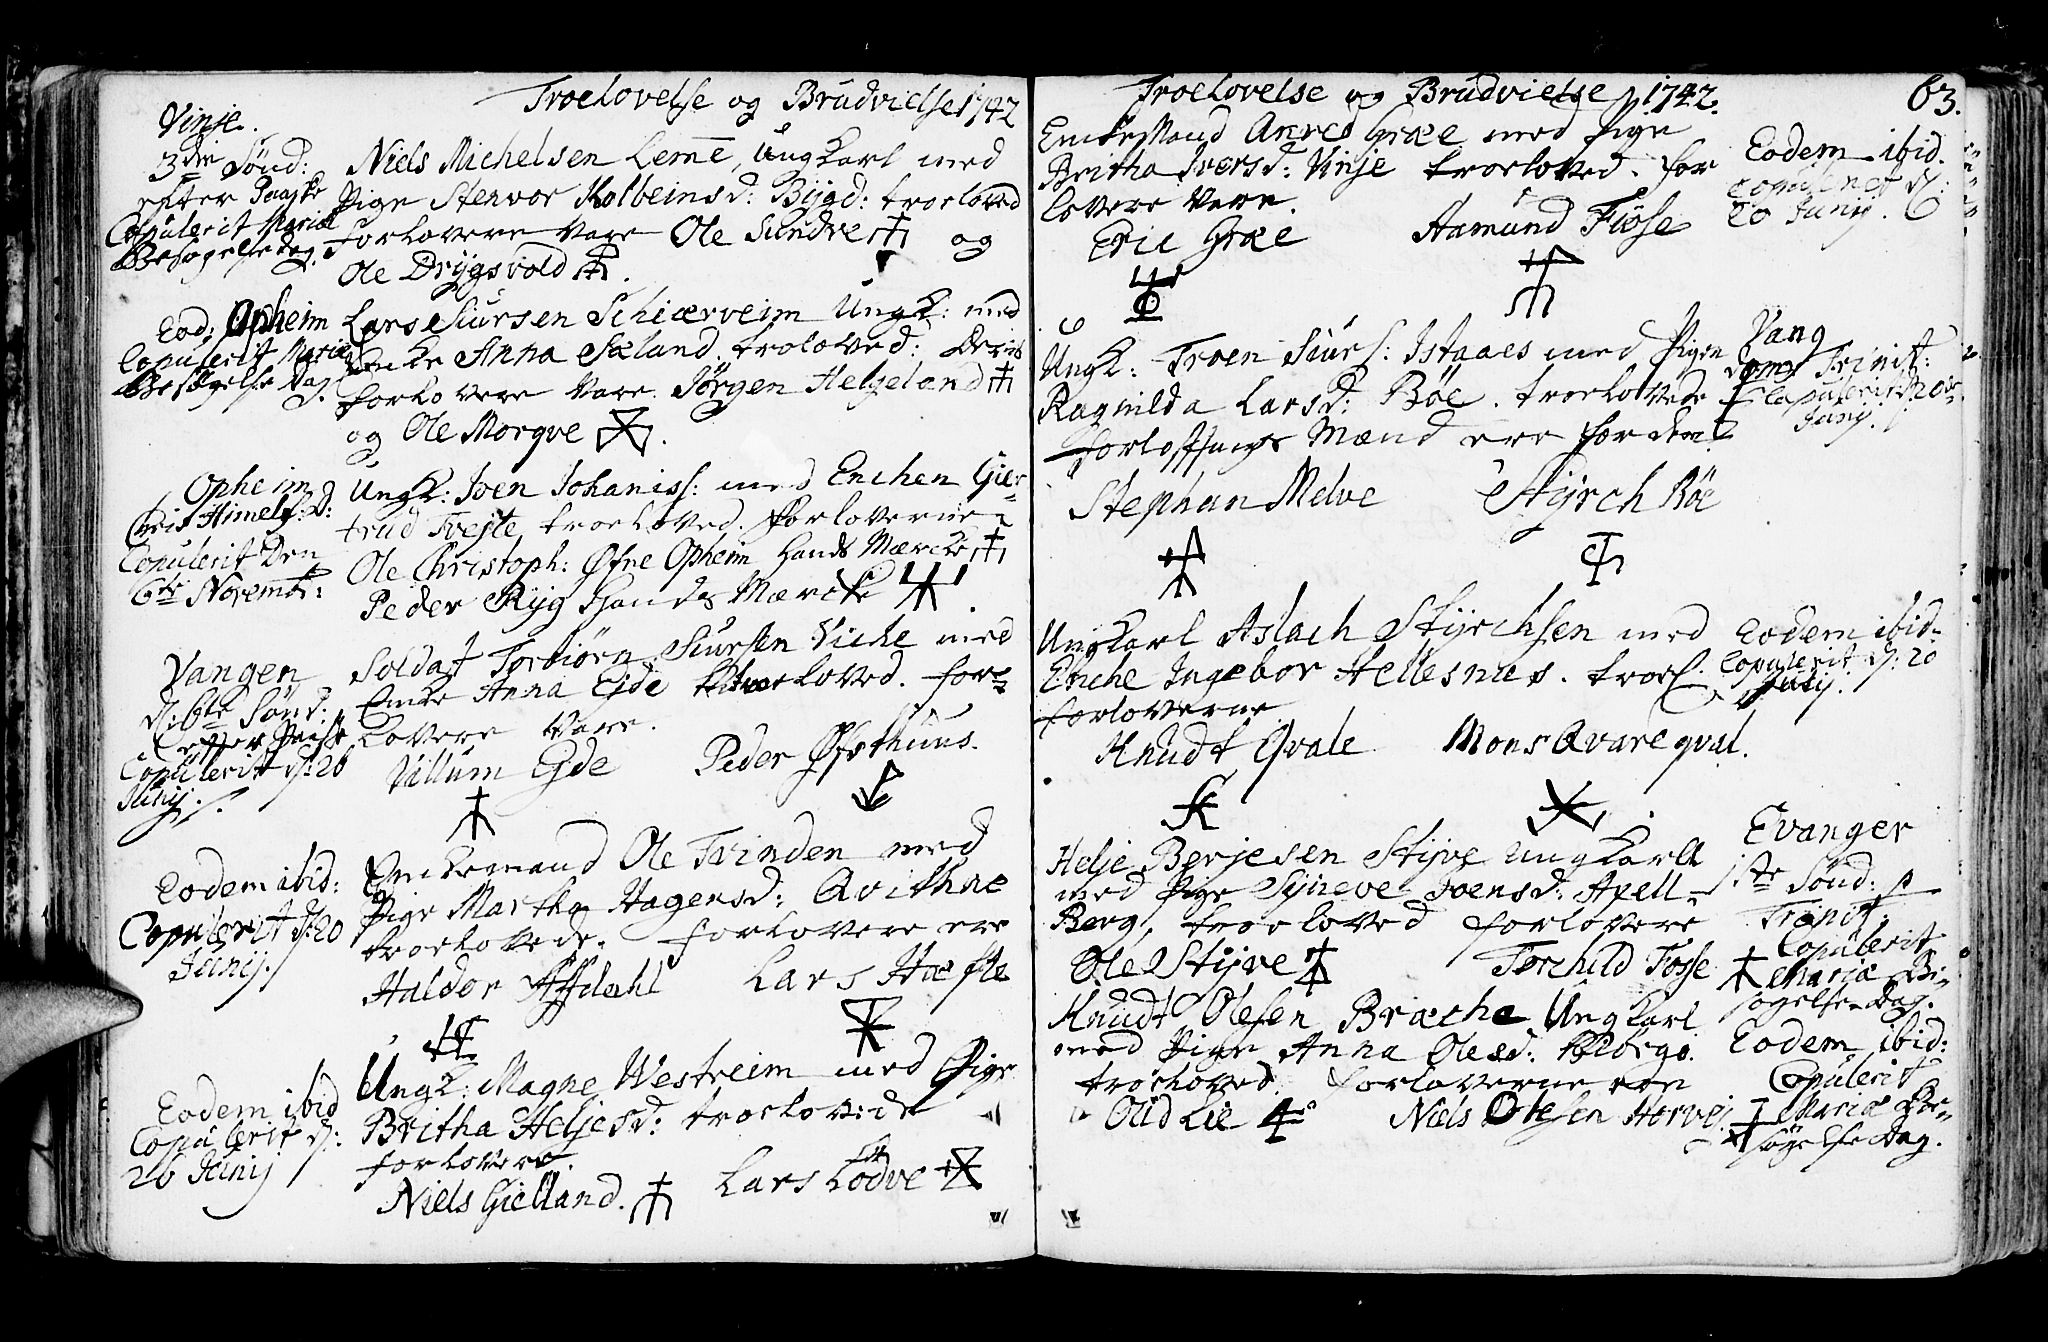 Troelovelse og Brudvielse 1742
Vinje.
3die Sønd:
efter Paaske
Copulerit Mariæ
Besøgelse dag.
Niels Michelsen Leme, Ungkarl med
Pige Stenvor Kolbeinsd: Bijgd: troeloved
forlovere Vare Ole Sundve og
Ole Drijgsvold
Eod: Opheim
Copulerit Mariæ
Besøgelse Dag.
Lars Siursen Schierveim Ungk: med
Enke Anna Sæland troloved: Deris
forlovere Vare Jørgen Helgeland
og Ole Morqve
Opheim
Chris Himelf: D:
Copulerit Den
6te Novemb:
Ungk: Joen Johaniss: med Enchen Gier-
trud Tvejte troeloved. forloverne
Ole Christoph: Øfne Opheim hands Mærcke
Peder Rijg hands Mærcke
Vangen
d: 6te Sønd:
efter Paask
Copulerit d: 26
Junij.
Soldat Torbiørn Siursen Viche med
Enke Anna Ejde troeloved. for-
lovere Vare.
Villum Ejde Peder Øfsthuus.
Eodem ibid:
Copulerit d: 20
Junij.
Enkemand Ole Tvinden med
Pige Martha Hagensd: Qvithne
troelovede. forlovere ere
Haldor Afdahl Lars Hæfte
Eodem ibid
Copulerit d:
26 Junij
Ungk: Magne Westreim med Pige
Britha Heljesd: troelovede
forlovere.
Niels Gielland. Lars Lødve
Troelovelse og Brudvielse 1742. 63.
Enkemand Anved Græe med Pige
Britha Iversd: Vinje troeloved. for
lovere Vare.
Eric Græe Aamund Fiøse
Eodem ibid.
Copulerit d:
20 Junij.
Ungk: Troen Siurs: Istaaes med Pigen
Ragnilda Larsd: Bøe. troelovede
forloffungs Mænd ere for dem
Stephan Melve Stijrch Røe
Vang
Dom Trinit:
Copulerit 20
Junij.
Ungkarl Aslach Stijrchsen med
Enche Ingebor Hellesnes. troel.
forloverne
Knudt Qvale Mons Qvareqval.
Eodem ibid-
Copulerit d: 20
Junij.
Helje Berjesen Stijve ungkarll
med Pige Sijneve Joensd: Apell-
Berg, troeloved forlovere
Ole Stijve Torchild Fosse
Evanger
1ste Sønd: p
Trinit:
Copulerit
Mariæ Be-
søgelse Dag.
Knudt Olesen Bræche Ungkarl
med Pige Anna Olesd:
troeloved. forloverne ere
Odd Lie Niels Olesen Horvej
Eodem ibid:
Copulerit
Mariæ Be-
søgelse Dag.